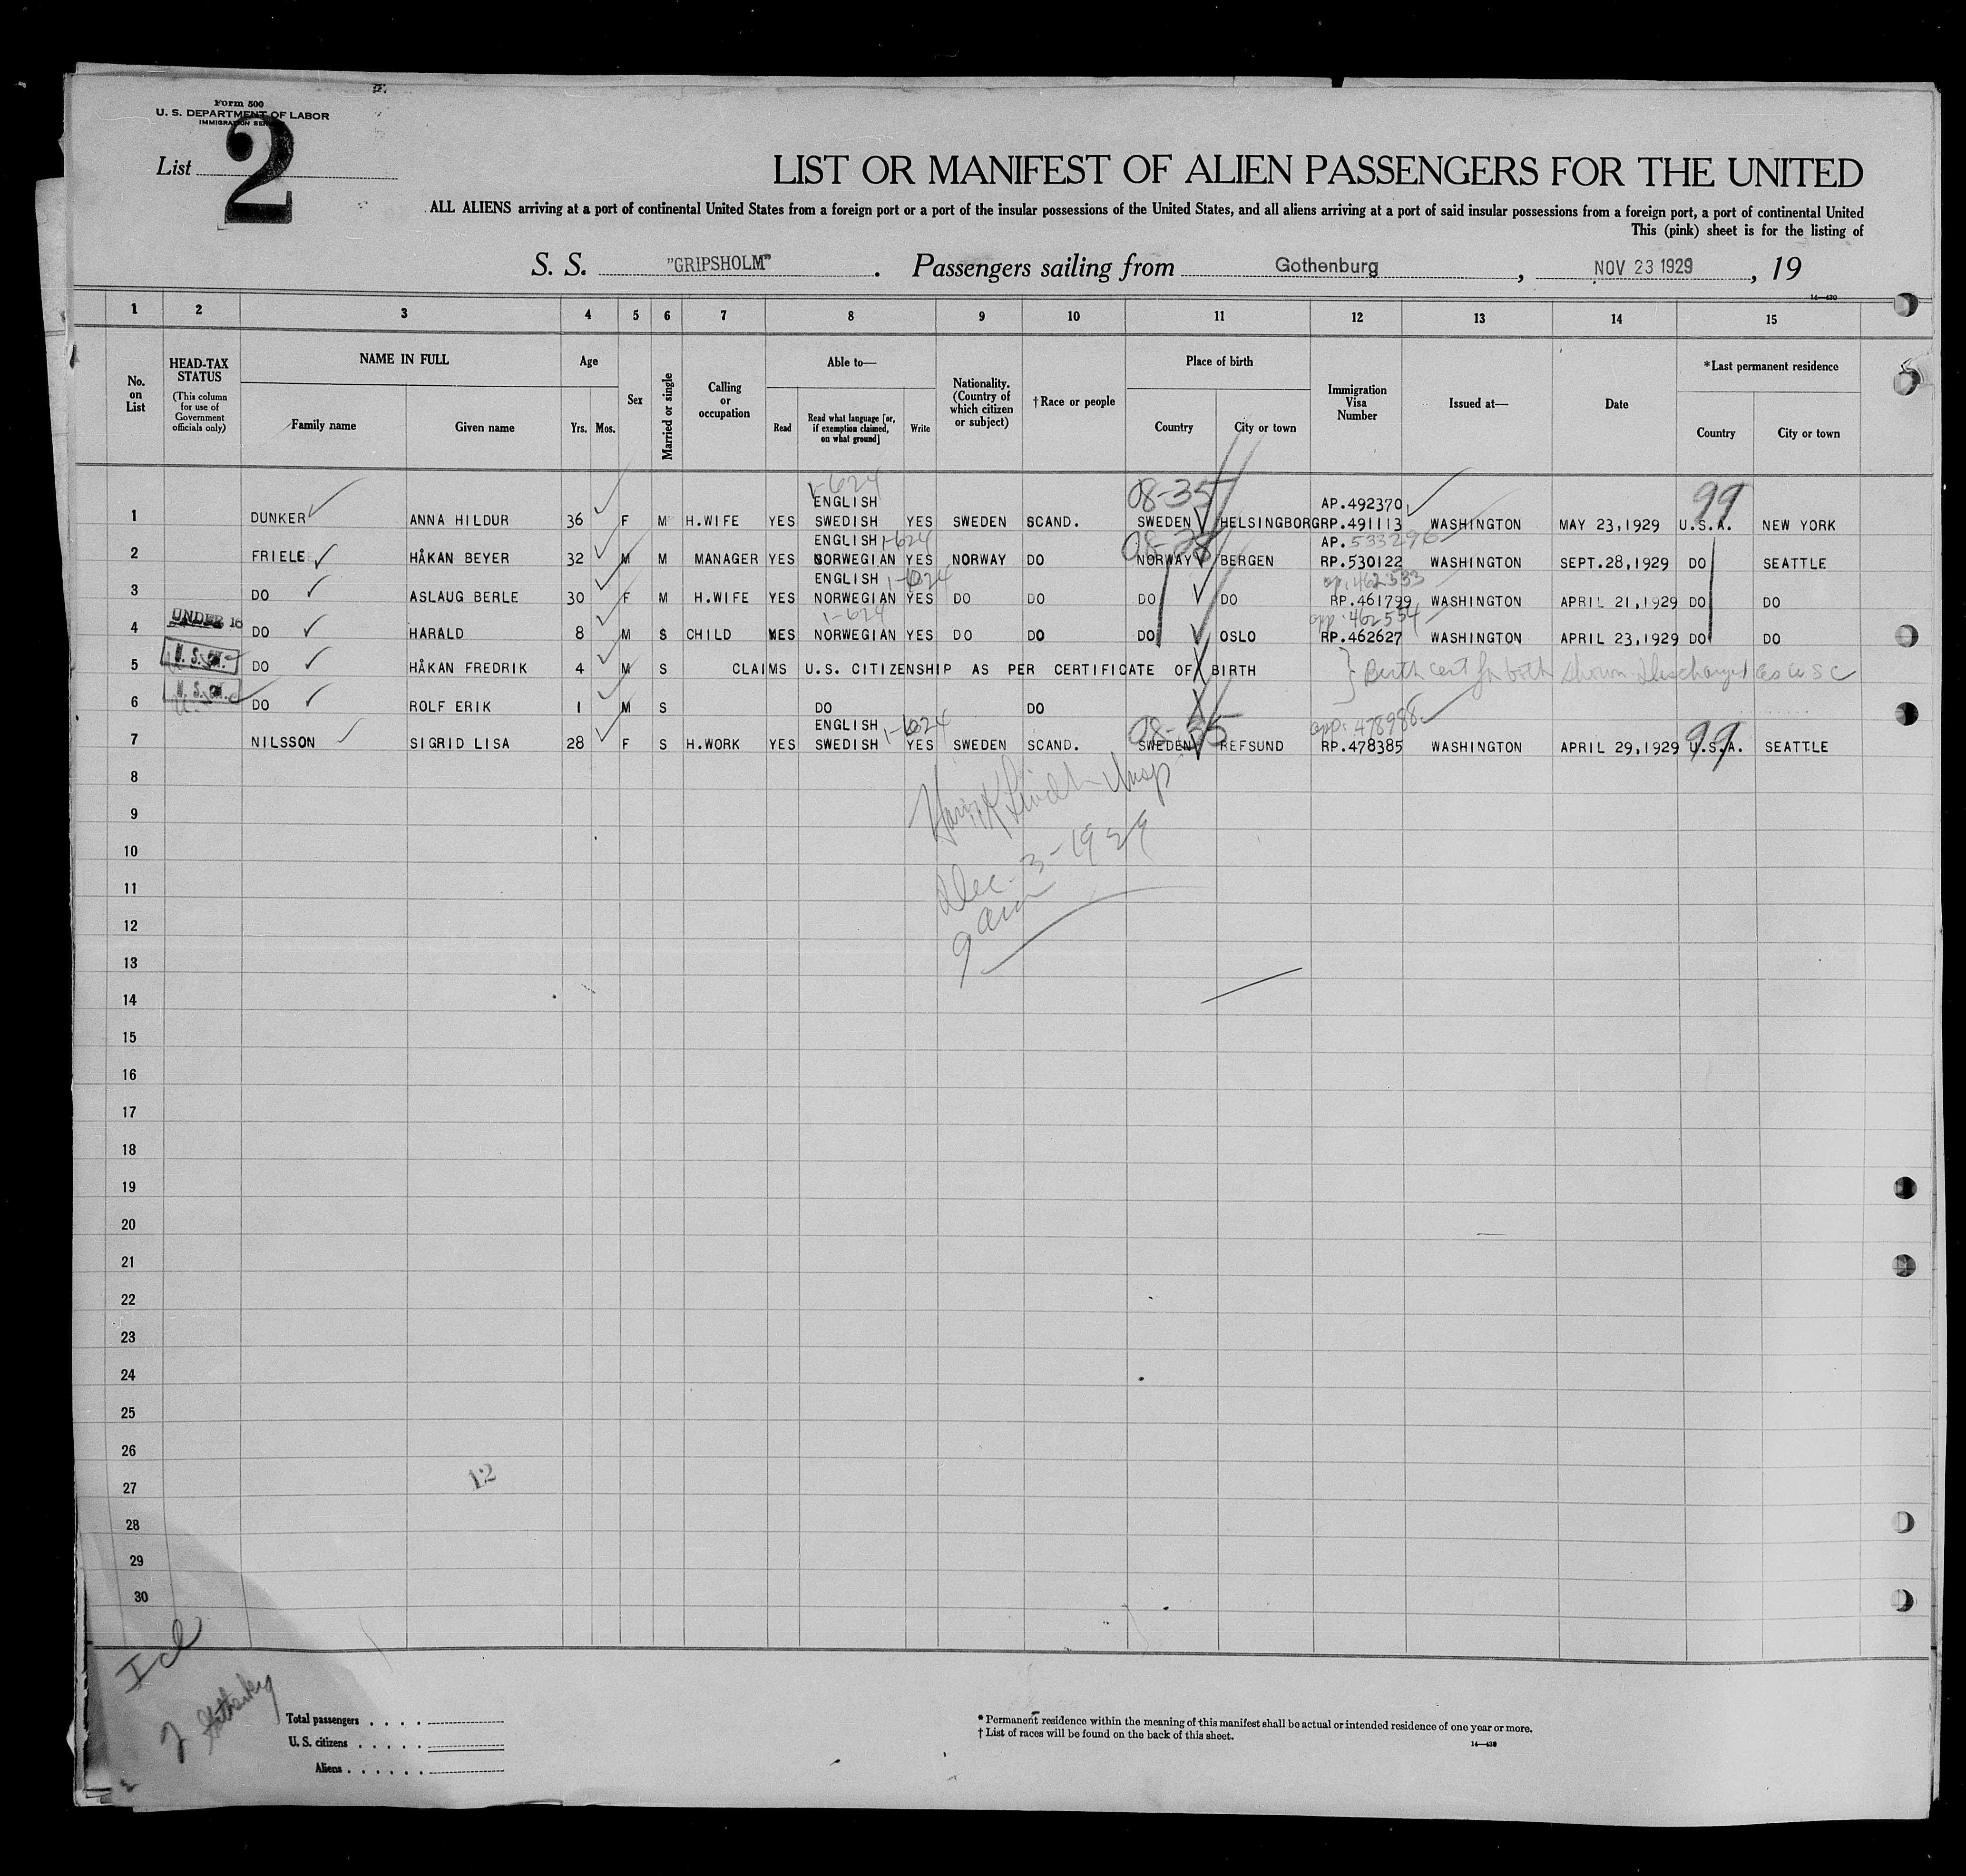 Form 500
U. S. DEPARTMENT OF LABOR
IMMIGRATION SERVICE
List 2
LIST OR MANIFEST OF ALIEN PASSENGERS FOR THE UNITED
ALL ALIENS arriving at a port of continental United States from a foreign port or a port of the insular possessions of the United States, and all aliens arriving at a port of said insular possessions from a foreign port, a port of continental United
This (pink) sheet is for the listing of
S. S. "GRIPSHOLM". Passengers sailing from Gothenburg, NOV 23 1929, 19
14—430
1 2 3 4 5 6 7 8 9 10 11 12 13 14 15
No. on List
HEAD-TAX STATUS (This column for use of Government officials only)
NAME IN FULL
Family name Given name
Age
Yrs. Mos.
Sex
Married or single
Calling or occupation
Able to—
Read Read what language [or, if exemption claimed, on what ground] Write
Nationality. (Country of which citizen or subject)
†Race or people
Place of birth
Country City or town
Immigration Visa Number
Issued at—
Date
*Last permanent residence
Country City or town
1-624 08-35 99
ENGLISH AP.492370
1 DUNKER ANNA HILDUR 36 F M H.WIFE YES SWEDISH YES SWEDEN SCAND. SWEDEN HELSINGBORG RP.491113 WASHINGTON MAY 23,1929 U.S.A. NEW YORK
ENGLISH 1-624 08-28 AP. 533296
2 FRIELE HÅKAN BEYER 32 M M MANAGER YES NORWEGIAN YES NORWAY DO NORWAY BERGEN RP.530122 WASHINGTON SEPT.28,1929 DO SEATTLE
ENGLISH 1-624 ap. 462533
3 DO ASLAUG BERLE 30 F M H.WIFE YES NORWEGIAN YES DO DO DO DO RP.461799 WASHINGTON APRIL 21,1929 DO DO
1-624 app. 462554
4 UNDER 16 DO HARALD 8 M S CHILD YES NORWEGIAN YES DO DO DO OSLO RP.462627 WASHINGTON APRIL 23,1929 DO DO
5 DO HÅKAN FREDRIK 4 M S CLAIMS U.S. CITIZENSHIP AS PER CERTIFICATE OF BIRTH Birth cert for both shown Discharged as U S C
6 DO ROLF ERIK 1 M S DO DO
ENGLISH 1-624 08-35 app. 478988 99
7 NILSSON SIGRID LISA 28 F S H.WORK YES SWEDISH YES SWEDEN SCAND. SWEDEN REFSUND RP.478385 WASHINGTON APRIL 29,1929 U.S.A. SEATTLE
8
9
10
Dec-3-1929
11
9 am
12
13
14
15
16
17
18
19
20
21
22
23
24
25
26
12
27
28
29
30
2
Total passengers
U. S. citizens
Aliens
* Permanent residence within the meaning of this manifest shall be actual or intended residence of one year or more.
† List of races will be found on the back of this sheet.
14—430